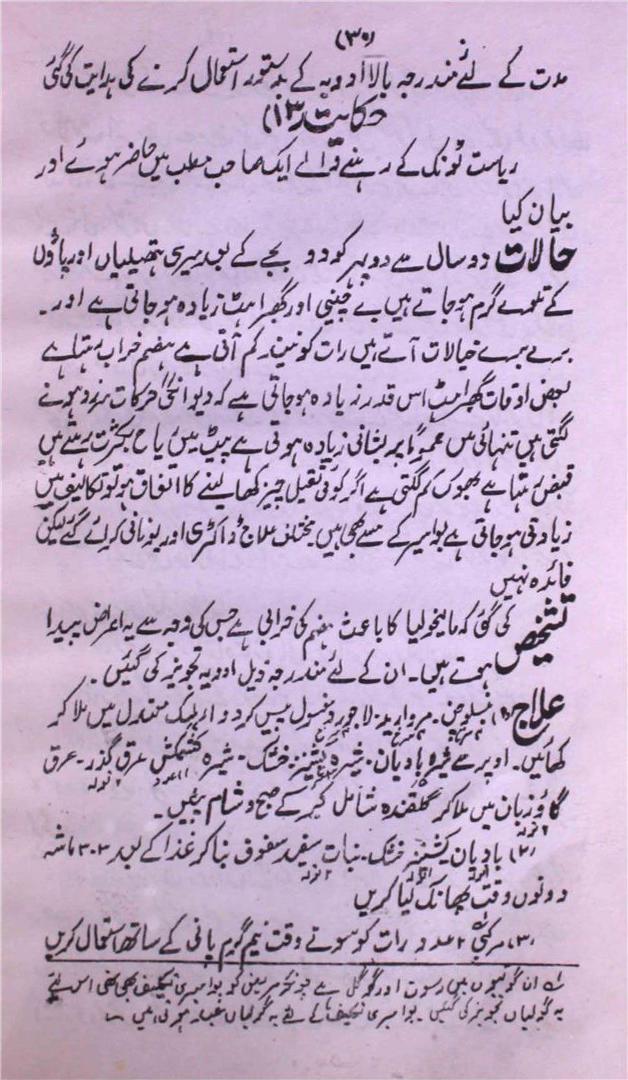 (۳۰)
مدت کے لئے مندرجہ بالا ادویہ کے بدستور استعمال کرنے کی ہدایت کی گئی
حکایت (۱۳)
ریاست ٹونک کے رہنے والے ایک صاحب مطب میں حاضر ہوئے اور
بیان کیا
حالات دو سال سے دوپہر کو دو بجے کے بعد میری ہتھیلیاں اور پاؤں
کے تلوے گرم ہو جاتے ہیں بے چینی اور گھبراہٹ زیادہ ہو جاتی ہے اور۔
برے برے خیالات آتے ہیں رات کو نیند کم آتی ہے ہضم خراب رہتا ہے
بعض اوقات گھبراہٹ اس قدر زیادہ ہو جاتی ہے کہ دیوانگی حرکات سرزد ہونے
لگتی ہیں تنہائی میں عموماً پریشانی زیادہ ہوتی ہے پیٹ میں ریاح بکثرت رہتے ہیں
قبض رہتا ہے بھوک کم لگتی ہے اگر کوئی ثقیل چیز کھا لینے کا اتفاق ہو تو تکالیف میں
زیادتی ہو جاتی ہے بواسیر کے مسے بھی ہیں مختلف علاج ڈاکٹری اور یونانی کرائے گئے لیکن
فائدہ نہیں
تشخیص کی گئی کہ مالیخولیا کا باعث ہضم کی خرابی ہے جس کی وجہ سے یہ اعراض پیدا
ہوتے ہیں۔ ان کے لئے مندرجہ ذیل ادویہ تجویز کی گئیں۔
علاج (۱) مروارید۔ لاجورد مغسول پیس کر دواء المسک معتدل میں ملا کر
کھائیں۔ اوپر سے شیرہ بادیان۔ شیرہ کشنیز خشک۔ شیرہ کشمش عرق گذر۔ عرق
گاؤزبان میں ملا کر گلقند شامل کر کے صبح و شام پئیں۔
۲ تولہ
(۲) بادیان کشنیز خشک۔ نبات سفید سفوف بنا کر غذا کے بعد ۳۔۳ ماشہ
۲ تولہ
دونوں وقت پھانک لیا کریں
(۳) ۲ عدد رات کو سوتے وقت نیم گرم پانی کے ساتھ استعمال کریں
ان گولیوں میں رسوت اور گوگل ہے چونکہ مریض کو بواسیری تکلیف بھی تھی اس لئے
یہ گولیاں تجویز کی گئیں۔ بواسیری تکلیف کے لئے یہ گولیاں ہیں